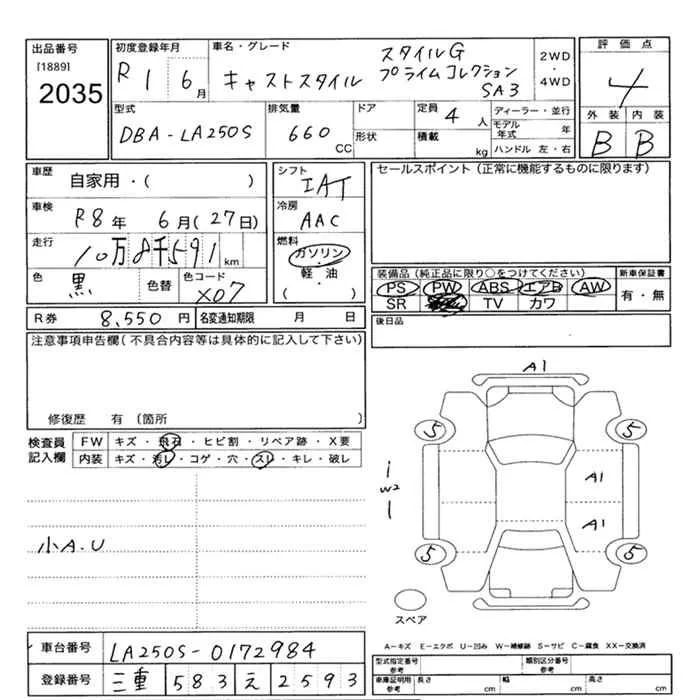 出品番号
[1889]
2035
初度登録年月
R 1 6月
車名・グレード
キャストスタイル
スタイルG
プライムコレクション
SA3
2WD
・
4WD
評価点
4
型式
DBA-LA250S
排気量
660
CC
ドア
形状
定員 4 人
積載 kg
ディーラー・並行
モデル年式 年
ハンドル 左・右
外装 内装
B B
車歴
自家用・( )
車検
R8年 6月(27日)
走行
10万8千591 km
色
黒
色替
色コード
X07
シフト
IAT
冷房
AAC
燃料
ガソリン
・
軽・油
( )
セールスポイント(正常に機能するものに限ります)
装備品(純正品に限り○をつけてください)
PS PW ABS エアB AW
SR TV カワ
新車保証書
有・無
R券 8,550 円
名変通知期限 月 日
後日品
注意事項申告欄(不具合内容等は具体的に記入して下さい)
修復歴 有 〔箇所 〕
検査員
記入欄
FW キズ・飛石・ヒビ割・リペア跡・X要
内装 キズ・汚レ・コゲ・穴・スレ・キレ・破レ
小A.U
A1
5 5
A1
W2
A1
5 5
スペア
車台番号 LA250S-0172984
登録番号 三重 583 え 2593
A-キズ E-エクボ U-凹み W-補修跡 S-サビ C-腐食 XX-交換済
型式指定番号
参考
類別区分番号
参考
車庫証明用
参考
長さ cm
幅 cm
高さ cm